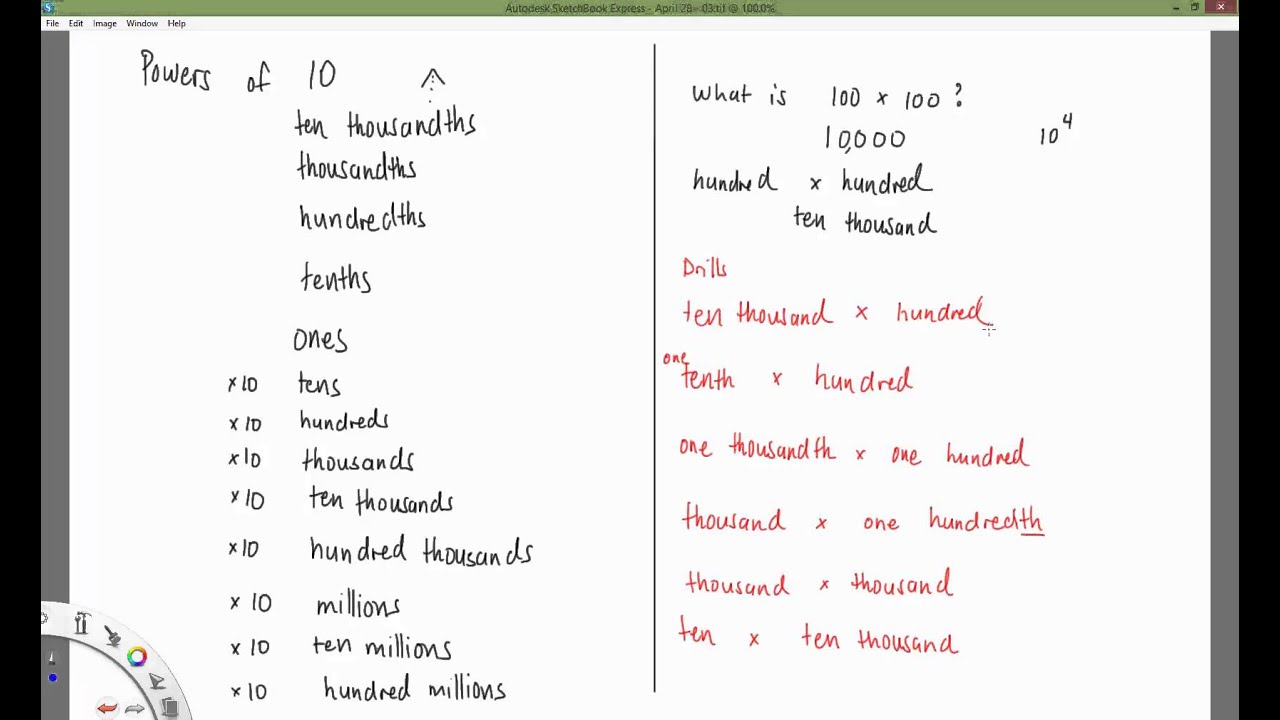 Autodesk SketchBook Express - April 28 - 03.tif @ 100.0%
File Edit Image Window Help
Powers of 10
ten thousandths
thousandths
hundredths
tenths
ones
×10 tens
×10 hundreds
×10 thousands
×10 ten thousands
×10 hundred thousands
×10 millions
×10 ten millions
×10 hundred millions
What is 100 × 100?
10,000 10^4
hundred × hundred
ten thousand
Drills
ten thousand × hundred
one
tenth × hundred
one thousandth × one hundred
thousand × one hundredth
thousand × thousand
ten × ten thousand